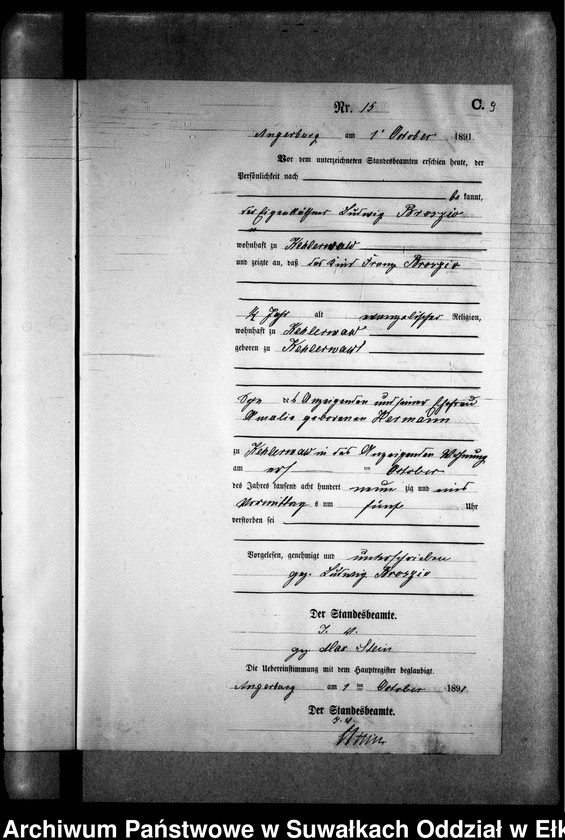 Nr. 15
C. 9
Angerburg am 1 October 1891.
Vor dem unterzeichneten Standesbeamten erschien heute, der
Persönlichkeit nach
be kannt,
der Eigenkäthner Ludwig Broszio
wohnhaft zu Kehlerwald
und zeigte an, daß das Kind Franz Broszio
¼ Jahr alt evangelischer Religion,
wohnhaft zu Kehlerwald
geboren zu Kehlerwald
Sohn des Anzeigenden und seiner Ehefrau
Amalie geborenen Hermann
zu Kehlerwald in des Anzeigenden Wohnung
am ten October
des Jahres tausend acht hundert neun zig und eins
Vormittag s um fünf Uhr
verstorben sei
Vorgelesen, genehmigt und unterschrieben
gez. Ludwig Broszio
Der Standesbeamte.
I. V.
gez. Stein
Die Uebereinstimmung mit dem Hauptregister beglaubigt.
Angerburg am 1 ten October 1891
Der Standesbeamte.
I. V.
Stein
Archiwum Państwowe w Suwałkach Oddział w Ełk